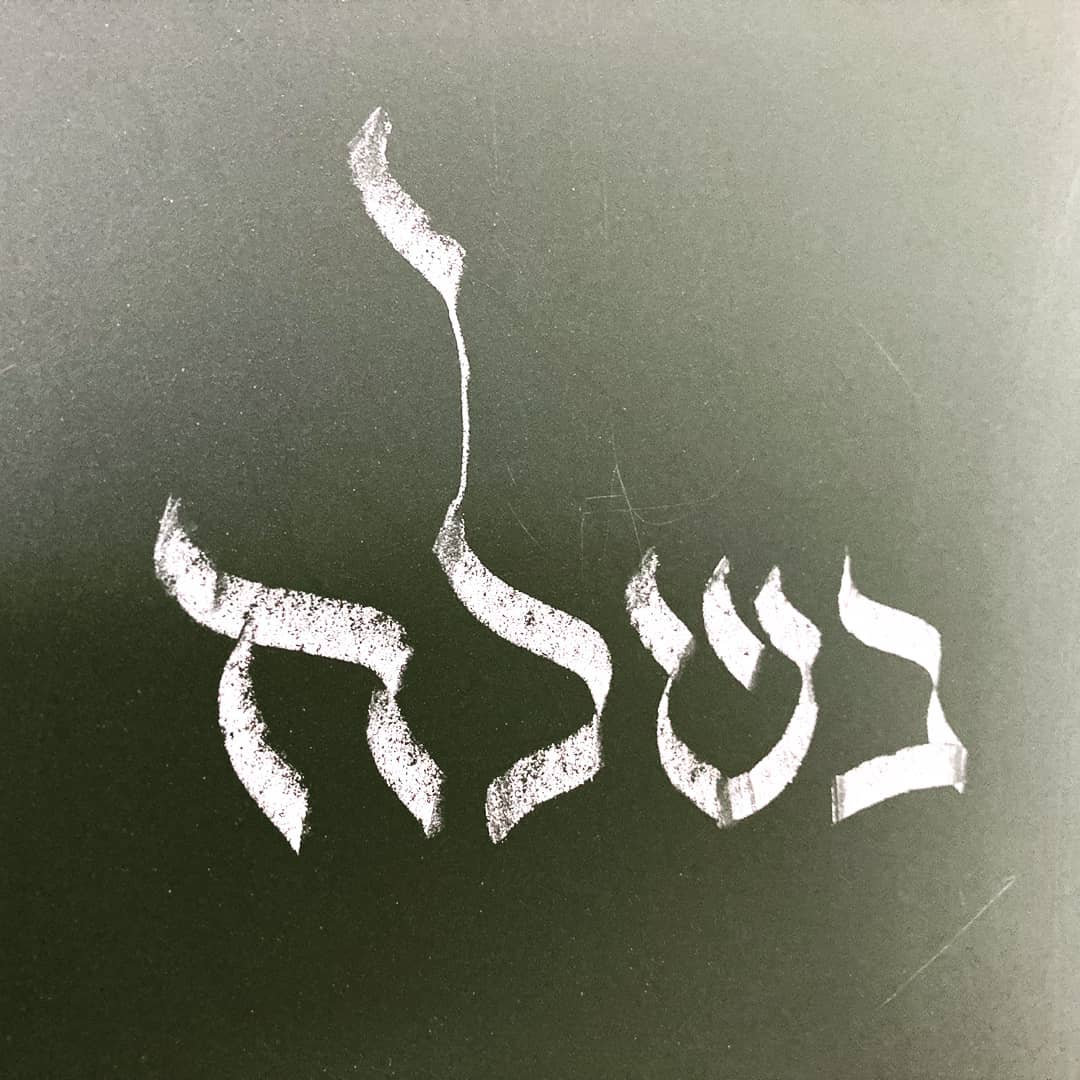 בשלח